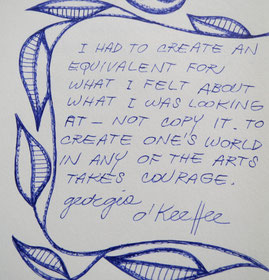 I HAD TO CREATE AN
EQUIVALENT FOR
WHAT I FELT ABOUT
WHAT I WAS LOOKING
AT – NOT COPY IT. TO
CREATE ONE'S WORLD
IN ANY OF THE ARTS
TAKES COURAGE.
georgia
O'Keeffe